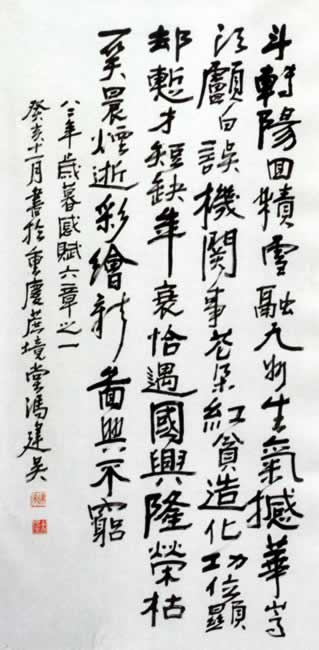 斗轉陽回積雪融九州生氣撼華嵩
頭顱白誤機關事花朵紅貧造化功位顯
却慙才短缺年衰恰遇國興隆榮枯
一笑晨煙逝彩繪新圖興不窮
八三年歲暮感賦六章之一
癸亥十一月書於重慶蔗境堂馮建吳